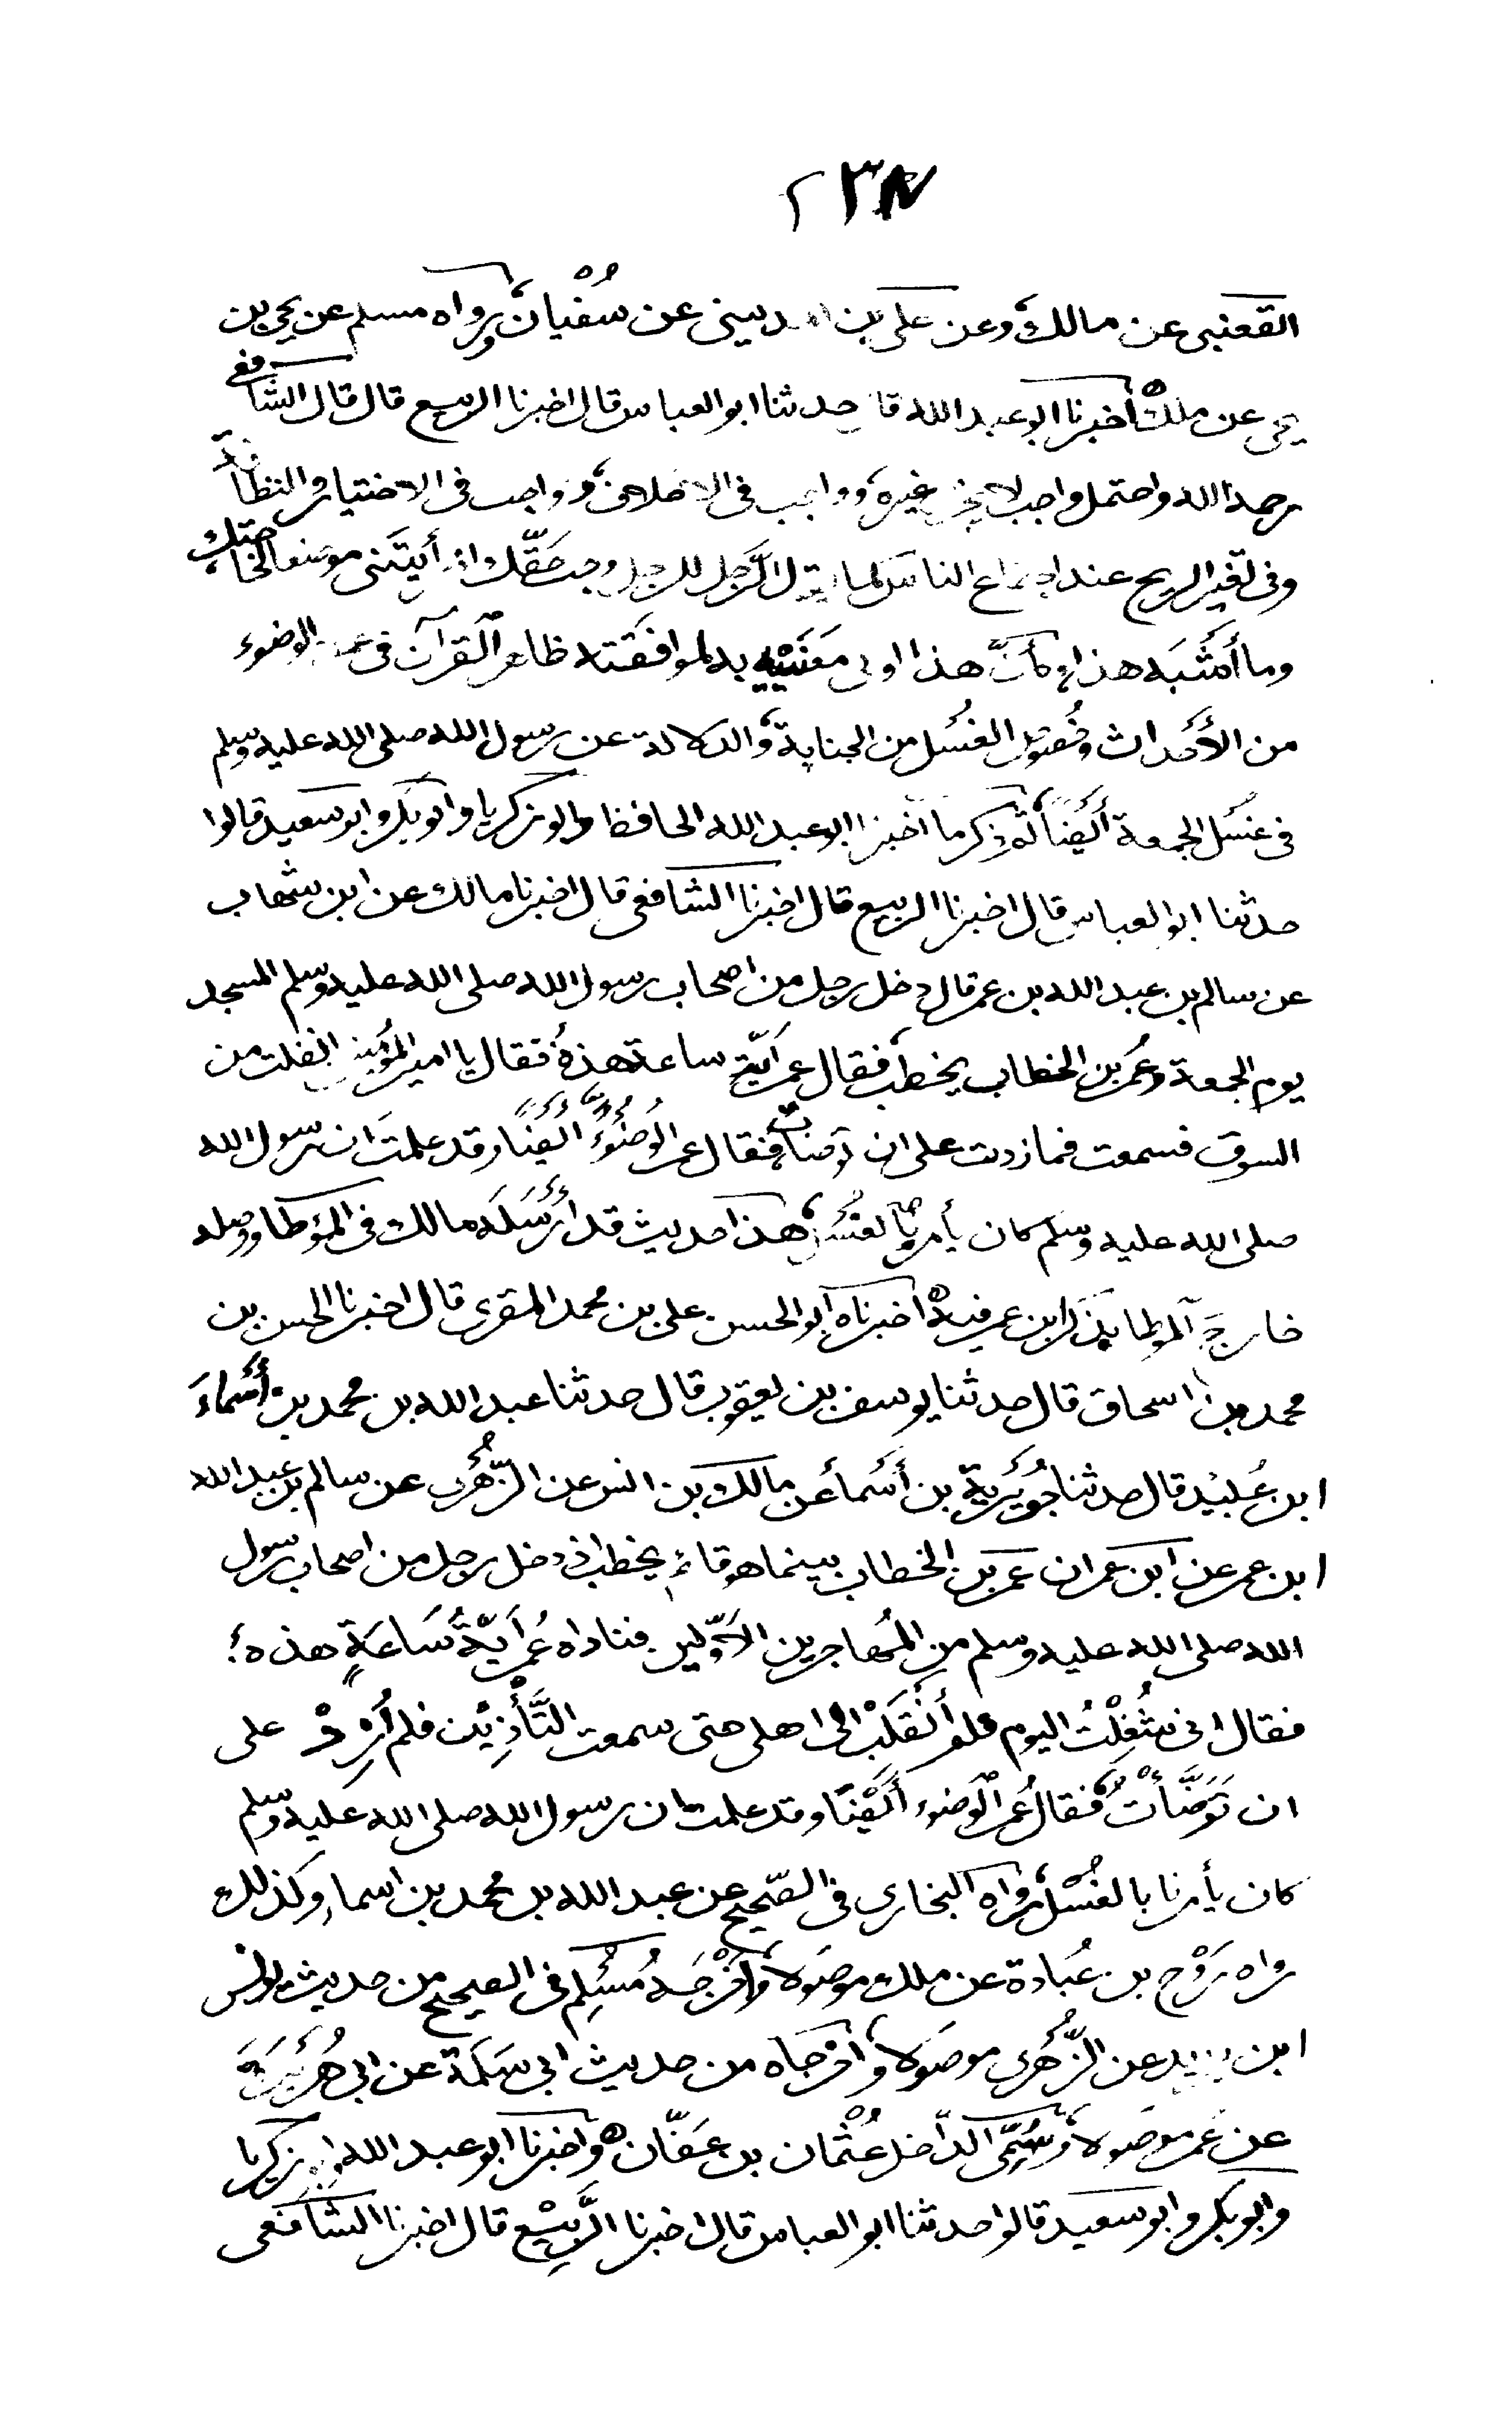 ٢٣٨
القعنبى عن مالك وعن على بن المدينى عن سُفْيان ورواه مسلم عن يحيى بن
يحيى عن ملك أخبرنا ابو عبد الله قال حدثنا ابو العباس قال اخبرنا الربيع قال قال الشافعى
رحمه الله واحتمل واجب لا يجزئ غيره وواجب فى الاخلاق وواجب فى الاختيار والنظافة
وفى تغير الريح عند اجتماع الناس كما يقول الرَّجل للرجل وجب حَقّك اذ رأيتَنى موضعا لحاجتك
وما أَشْبَه هذا وكأنّ هذا اولى مَعْنَيَيْه به لموافقته ظاهر القرآن فى عموم الوضوء
من الأَحْداث وخُصوص الغُسْل من الجنابة والدلالة عن رسول الله صلى الله عليه وسلم
فى غُسْل الجمعة أَيْضاً ثم ذكر ما اخبرنا ابو عبد الله الحافظ وابو زكريا وابو بكر وابو سعيد قالوا
حدثنا ابو العباس قال اخبرنا الربيع قال اخبرنا الشافعى قال اخبرنا مالك عن ابن شهاب
عن سالم بن عبد الله بن عمر قال دخل رجل من اصحاب رسول الله صلى الله عليه وسلم المسجد
يوم الجمعة وعُمر بن الخطاب يخطب فقال عمر أيّة ساعة هذه فقال يا امير المؤمنين انقلبت من
السوق فسمعت فما زدت على ان توضأت فقال عمر الوُضُوءُ ايضا وقد علمتَ ان رسول الله
صلى الله عليه وسلم كان يأمر بالغُسْل هذا حديث قد أَرْسَلَه مالك فى المؤطا ووصله
خارج الموطا بذكر ابن عمر فيه أخبرناه ابو الحسن على بن محمد المقرى قال اخبرنا الحسن بن
محمد بن اسحاق قال حدثنا يوسف بن يعقوب قال حدثنا عبد الله بن محمد بن أَسْماءَ
ابن عُبَيْد قال حدثنا جُوَيْرِية بن أَسْماء عن مالك بن انس عن الزُّهْرى عن سالم بن عبد الله
ابن عمر عن ابن عمر ان عمر بن الخطاب بينما هو قائم يخطب اذ دخل رجل من اصحاب رسول
الله صلى الله عليه وسلم من المُهاجرين الأَوّلين فناداه عُمر أَيّةُ سَاعَةٍ هذه؛
فقال انى شُغِلْتُ اليوم فلم أَنْقَلِبْ الى اهلى حتى سمعت التَّأْذِيْن فلم أَزِدْ على
ان تَوَضَّأْتُ فقال عُمر الوضوء أَيْضًا وقد علمت ان رسول الله صلى الله عليه وسلم
كان يأمرنا بالغُسْل رواه البخارى فى الصّحيح عن عبد الله بن محمد بن اسماء وكذلك
رواه رَوْح بن عُبادة عن ملك موصَولا وأَخْرَجَه مُسْلِم فى الصحيح من حديث يونس
ابن يزيد عن الزُّهْرى موصَولا وأخرجاه من حديث ابى سَلَمَة عن ابى هُرَيْرَةَ
عن عُمر موصَولا وسُمِّى الدّاخل عُثْمان بن عَفّان واخبرنا ابو عبد الله وابو زكريا
وابو بكر وابو سعيد قالوا حدثنا ابو العباس قال اخبرنا الرَّبِيْع قال اخبرنا الشافعى